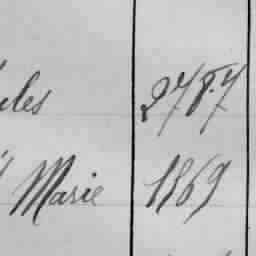 ules 278.7
Marie 1869